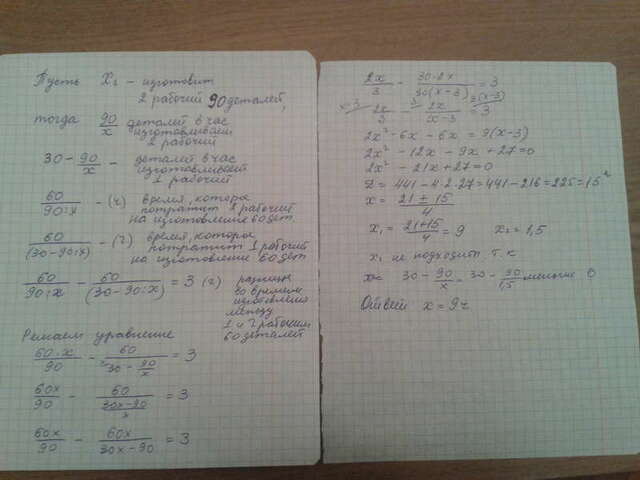 Пусть X₂ - изготовит
2 рабочий 90 деталей,
тогда 90/x деталей в час
изготовливает
2 рабочий
30 - 90/x - деталей в час
изготовливает
1 рабочий
60/90:x - (ч) время, которое
потратит 2 рабочий
на изготовление 60 дет.
60/(30-90:x) - (ч) время, которое
потратит 1 рабочий
на изготовление 60 дет
60/90:x - 60/(30-90:x) = 3 (ч) разница
во времени
между
1 и 2 рабочим
60 деталей
Решаем уравнение
60·x/90 - 60/30-90/x = 3
60x/90 - 60/30x-90/x = 3
60x/90 - 60x/30x-90 = 3
2x/3 - 30·2x/30(x-3) = 3
x-3 2x/3 - 3 2x/x-3 = 3 3(x-3)
2x² - 6x - 6x = 9(x-3)
2x² - 12x - 9x + 27 = 0
2x² - 21x + 27 = 0
D = 441 - 4·2·27 = 441 - 216 = 225 = 15²
x = 21 ± 15/4
x₁ = 21+15/4 = 9 x₂ = 1,5
не подходит, т.к
30 - 90/x 30 - 90/1,5 меньше 0
Ответ x = 9 ч